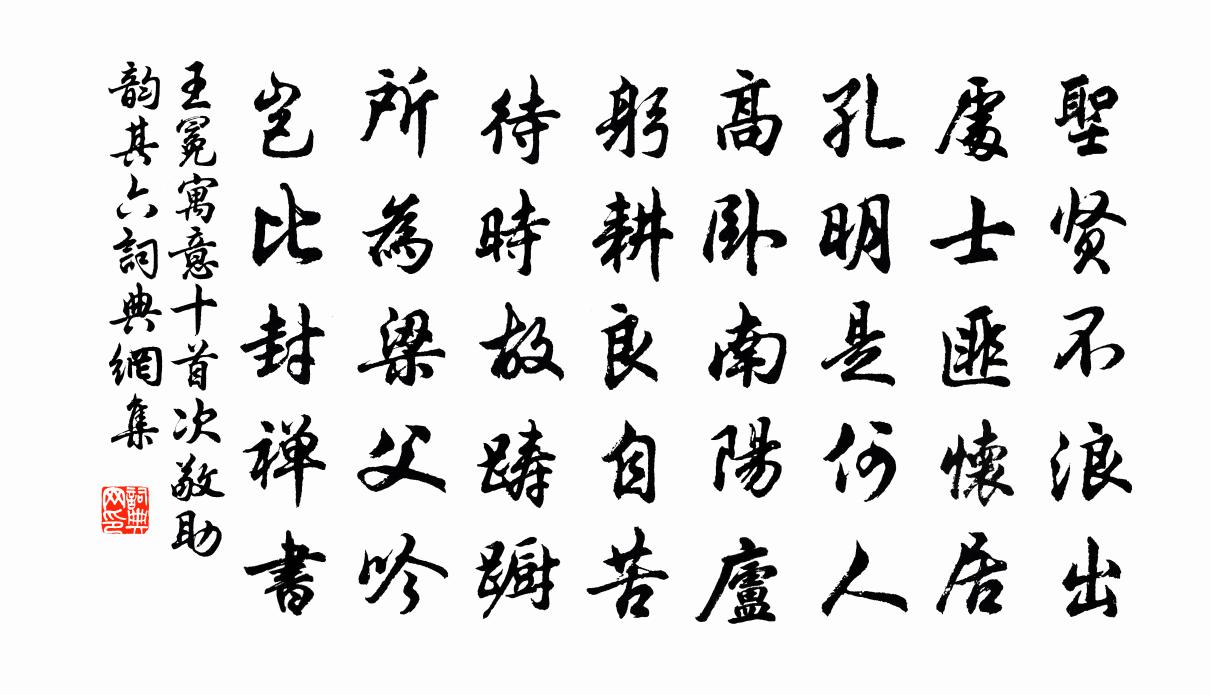 聖贤不浪出
處士匪懷居
孔明是何人
高卧南陽廬
躬耕良自苦
待時故踌蹰
所為梁父吟
岂比封禅書
王冕寓意十首次敬助
韵其六詞典網集
詞典网印